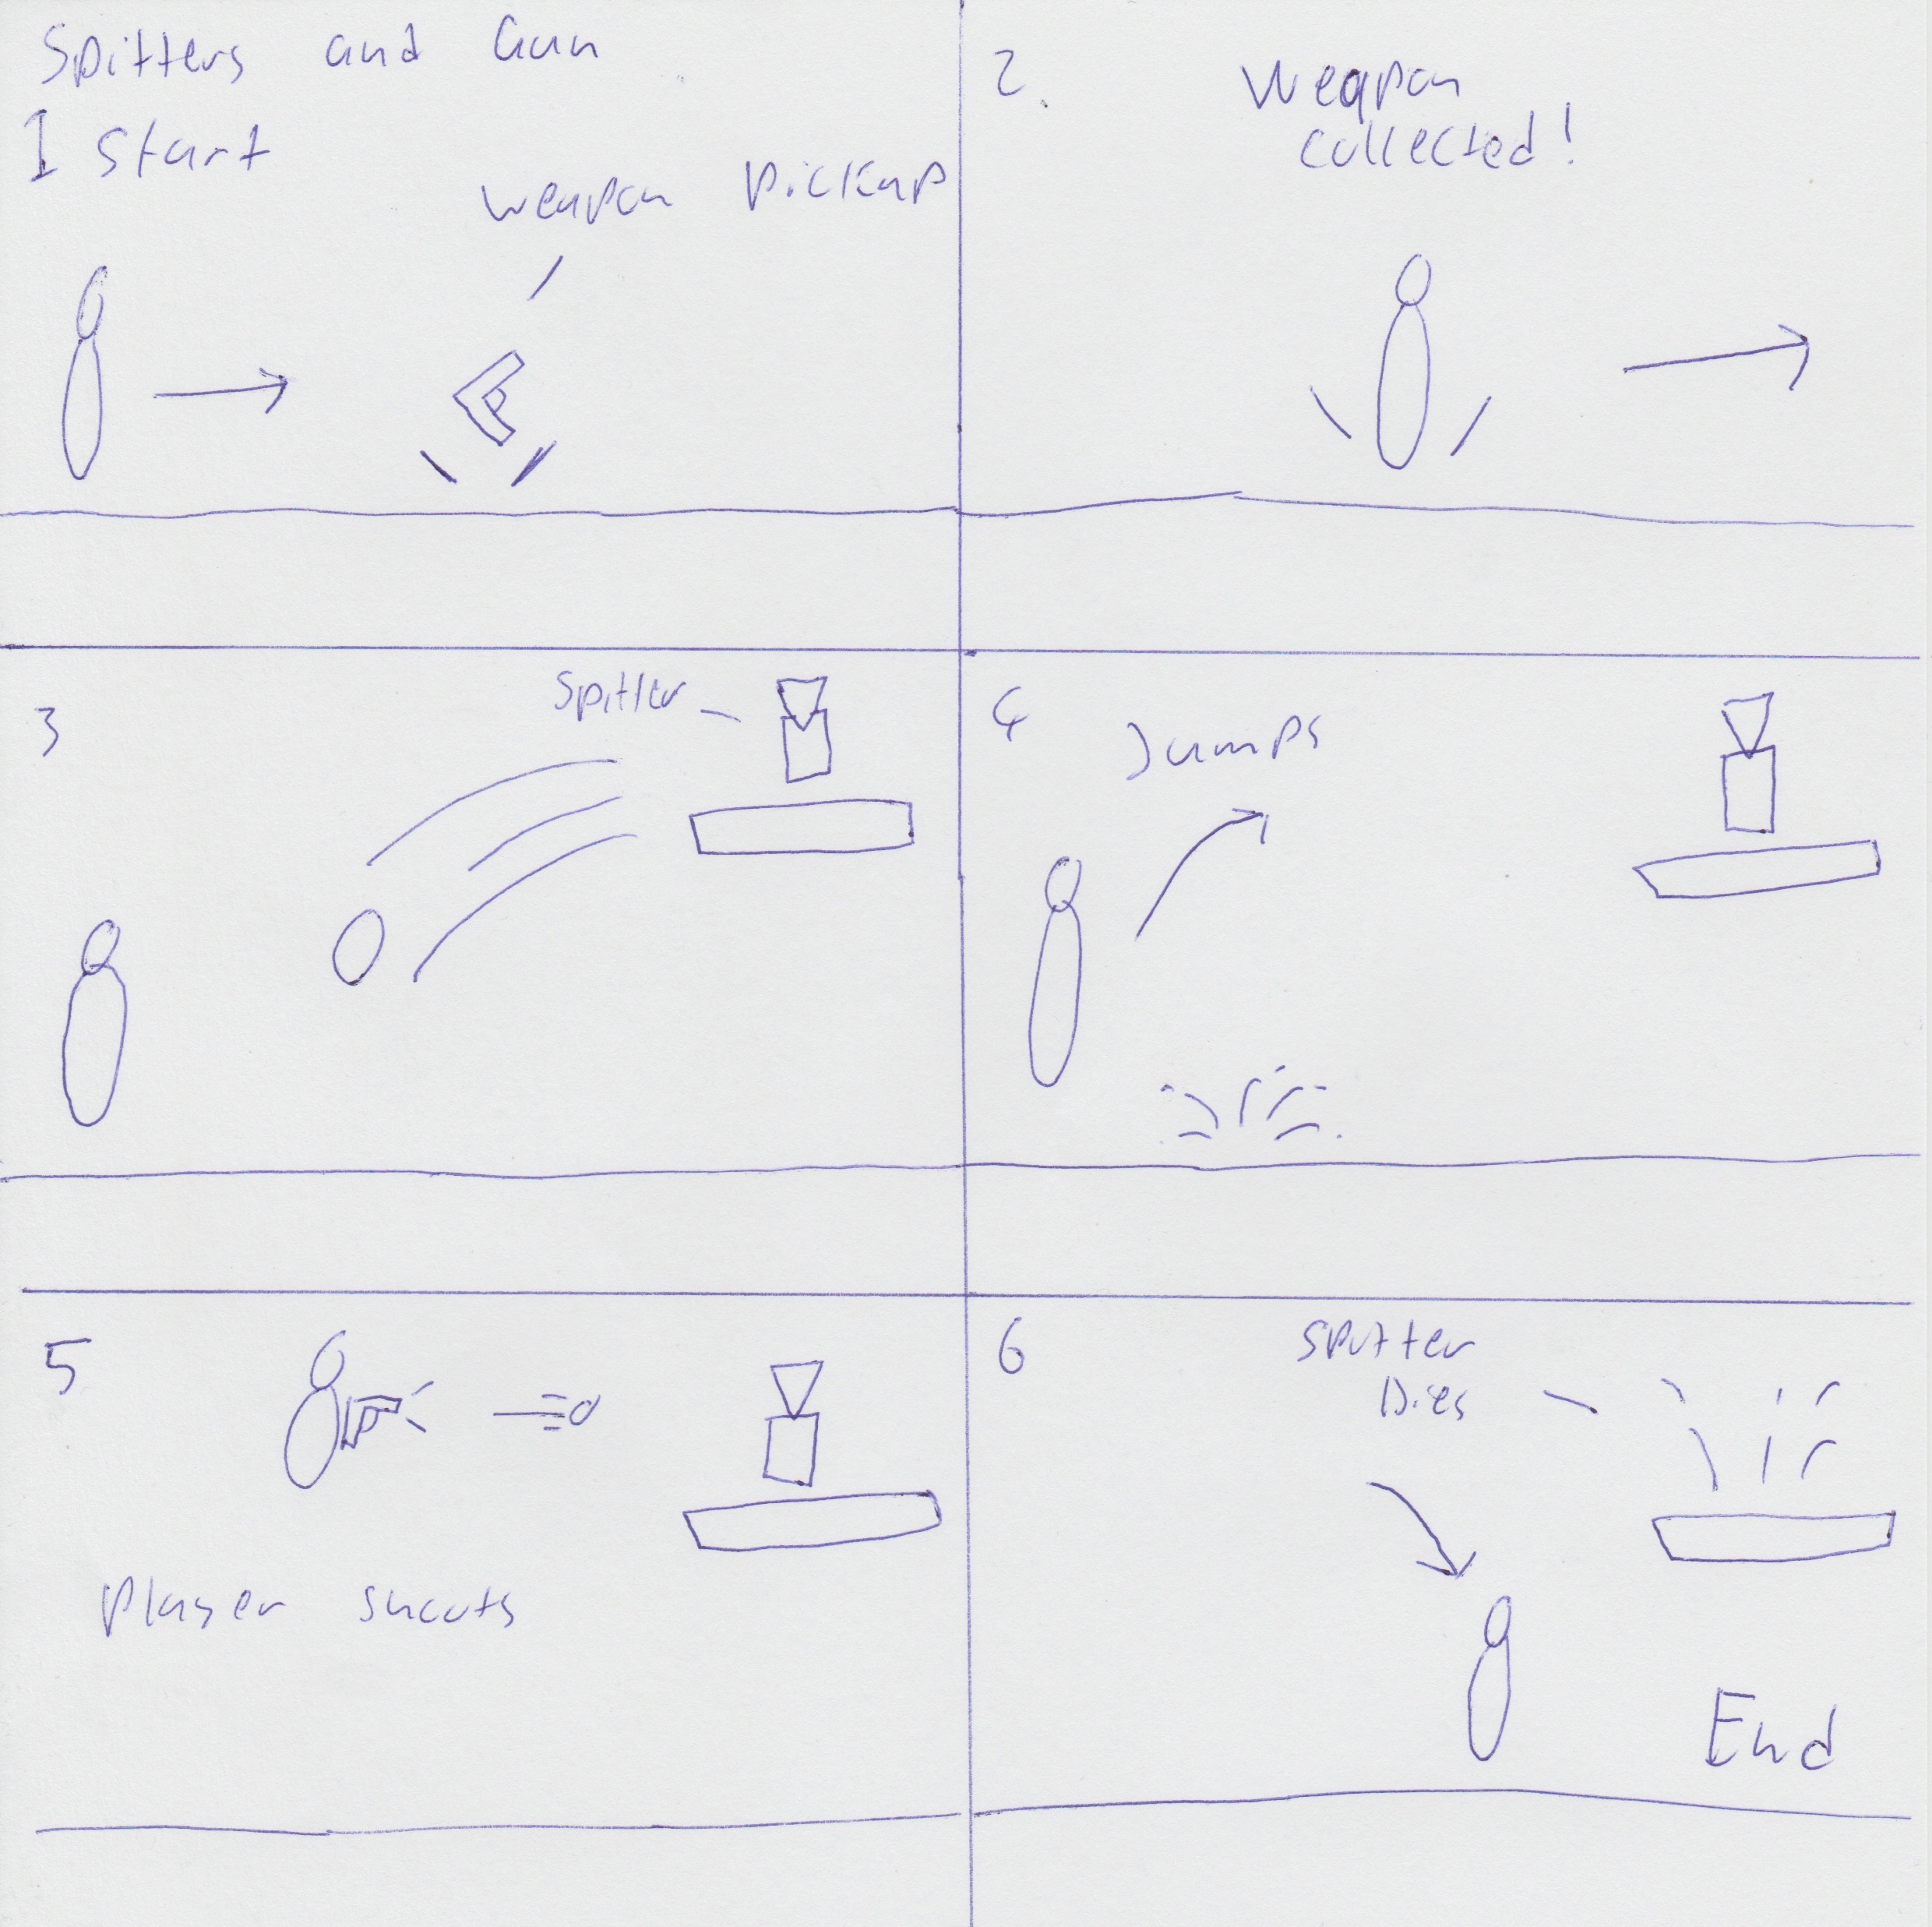 Spitters and Gun
1 Start
weapon pickup
2.
Weapon
collected!
3
Spitter
4
Jumps
5
Player shoots
6
Spitter
Dies
End